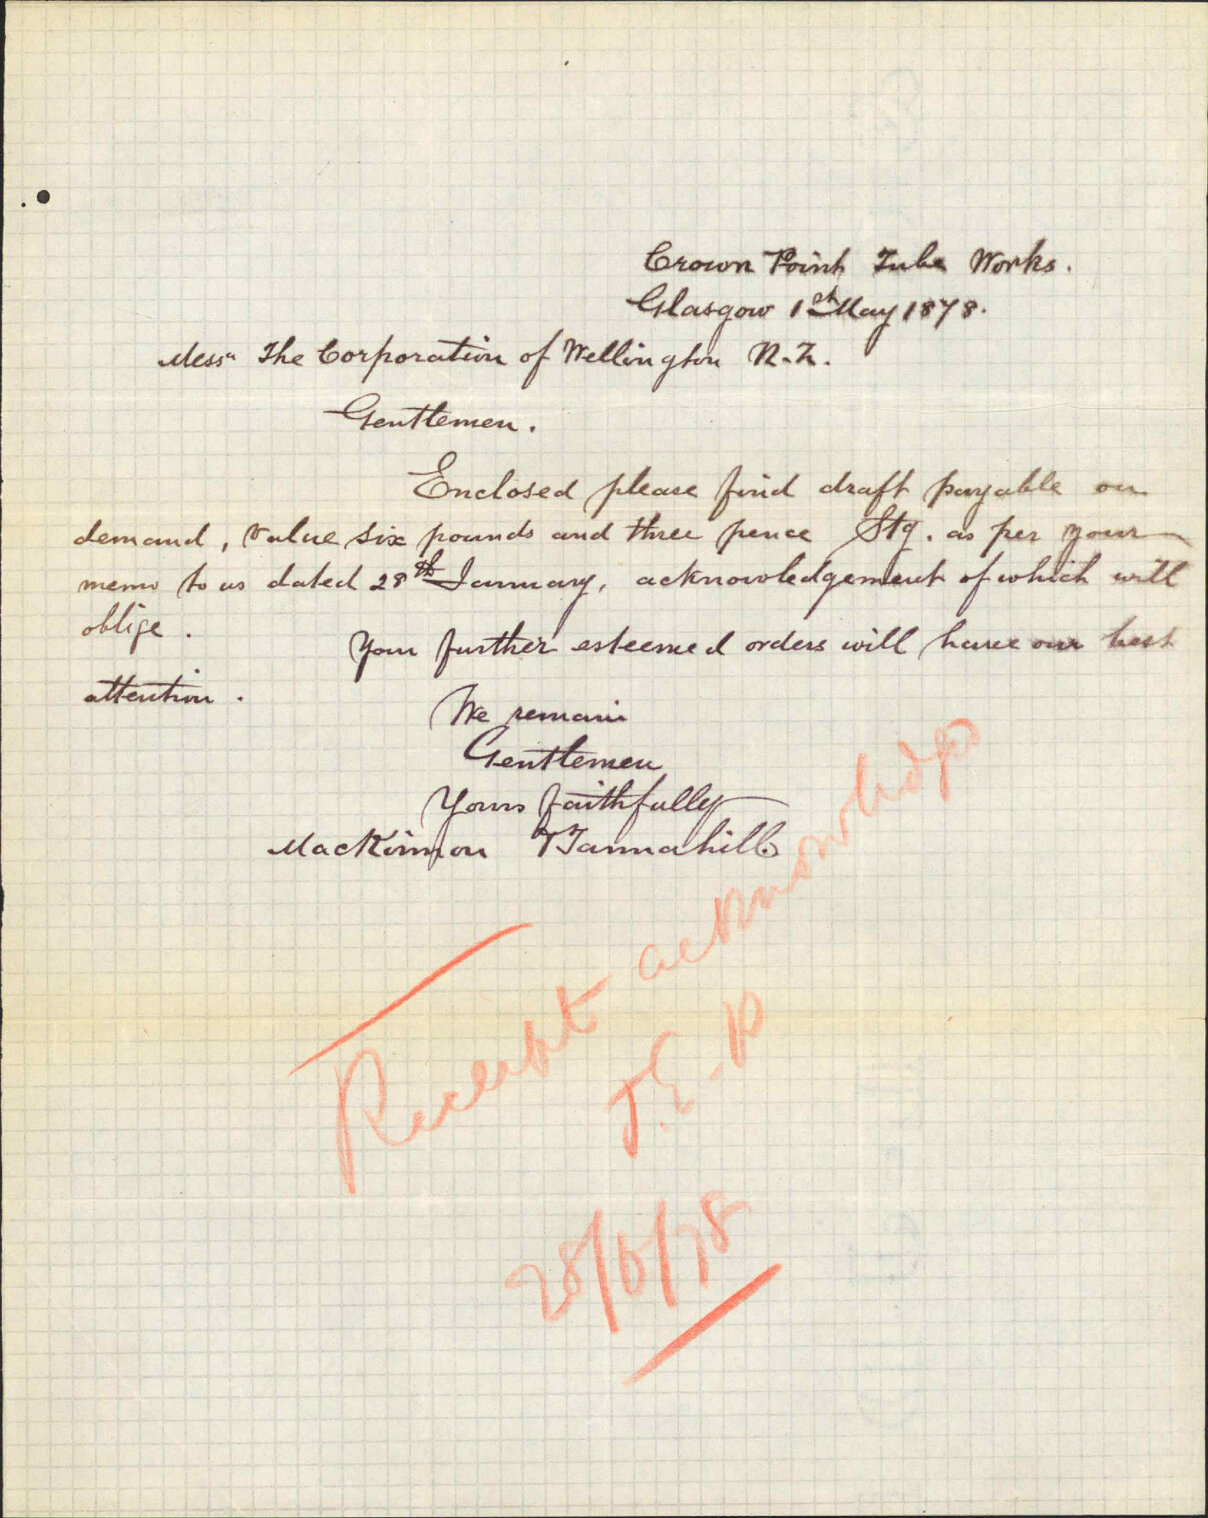 Crown Point Tube Works.
Glasgow 1st May 1878.
Messrs The Corporation of Wellington N.Z.
Gentlemen.
Enclosed please find draft payable on
demand, value six pounds and three pence Stg. as per your
memo to us dated 28th January, acknowledgement of which will
oblige.
Your further esteemed orders will have our best
attention.
We remain
Gentlemen
Yours faithfully
MacKinnon & Tannahill
Receipt acknowledged
J.E.P
28/6/78